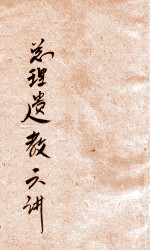 总理遗教六讲